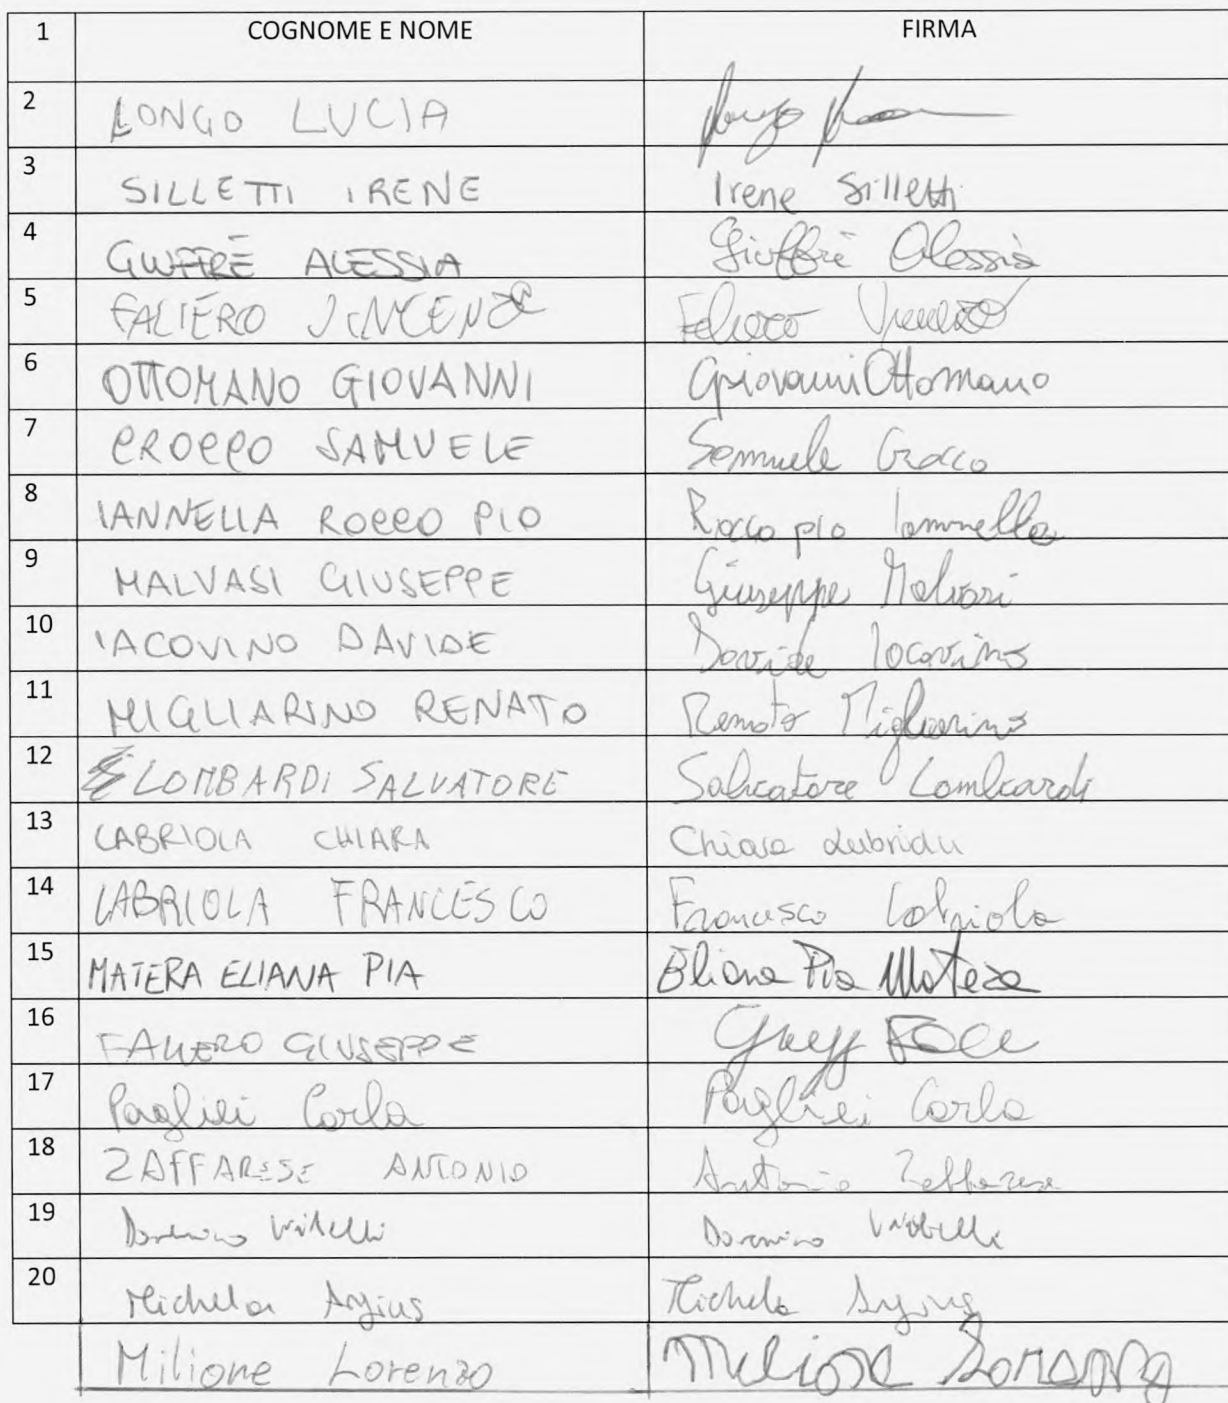 1 COGNOME E NOME FIRMA
2 LONGO LUCIA
3 SILLETTI IRENE Irene Silletti
4 GIUFFRÈ ALESSIA Giuffrè Alessia
5 FALIERO VINCENZO Faliero Vincenzo
6 OTTOMANO GIOVANNI Giovanni Ottomano
7 CROCCO SAMUELE Samuele Crocco
8 IANNELLA ROCCO PIO Rocco pio Iannella
9 MALVASI GIUSEPPE Giuseppe Malvasi
10 IACOVINO DAVIDE Davide Iacovino
11 MIGLIARINO RENATO Renato Migliarino
12 LOMBARDI SALVATORE Salvatore Lombardi
13 LABRIOLA CHIARA Chiara Labriola
14 LABRIOLA FRANCESCO Francesco Labriola
15 MATERA ELIANA PIA Eliana Pia Matera
16 FALIERO GIUSEPPE
17 Pagliei Carla Pagliei Carla
18 ZAFFARESE ANTONIO Antonio Zaffarese
19 Domenico Vitelli Domenico Vitelli
20 Michela Argius Michela Argius
Milione Lorenzo Milione Lorenzo